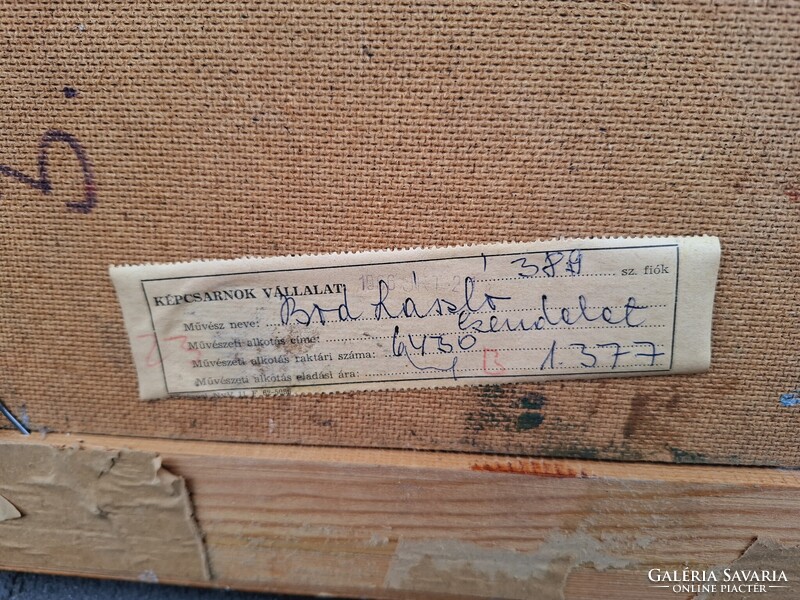 B.
389 sz. fiók
KÉPCSARNOK VÁLLALAT
Művész neve: Bod László
Művészeti alkotás címe: Csendélet
Művészeti alkotás raktári száma: 6430
Művészeti alkotás eladási ára: B 1.377
GALÉRIA SAVARIA
ONLINE PIACTÉR